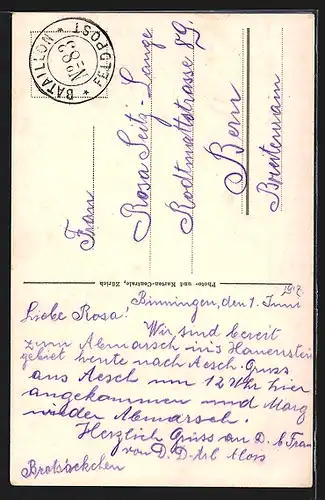 BATAILLON * FELDPOST *
No 83
Frau
Rosa Seitz-Lange
Rodtmattstrasse 89.
Bern
Breitenrain
Photo- und Karten-Centrale, Zürich
Binningen, den 1. Juni 1917.
Liebe Rosa!
Wir sind bereit
zum Abmarsch ins Hauenstein
gebiet heute nach Aesch. Gruss
aus Aesch um 12 Uhr hier
angekommen und Morg
wieder Abmarsch.
Herzlich Gruss an D. b. Frau
von D. Alois
Brotsäckchen